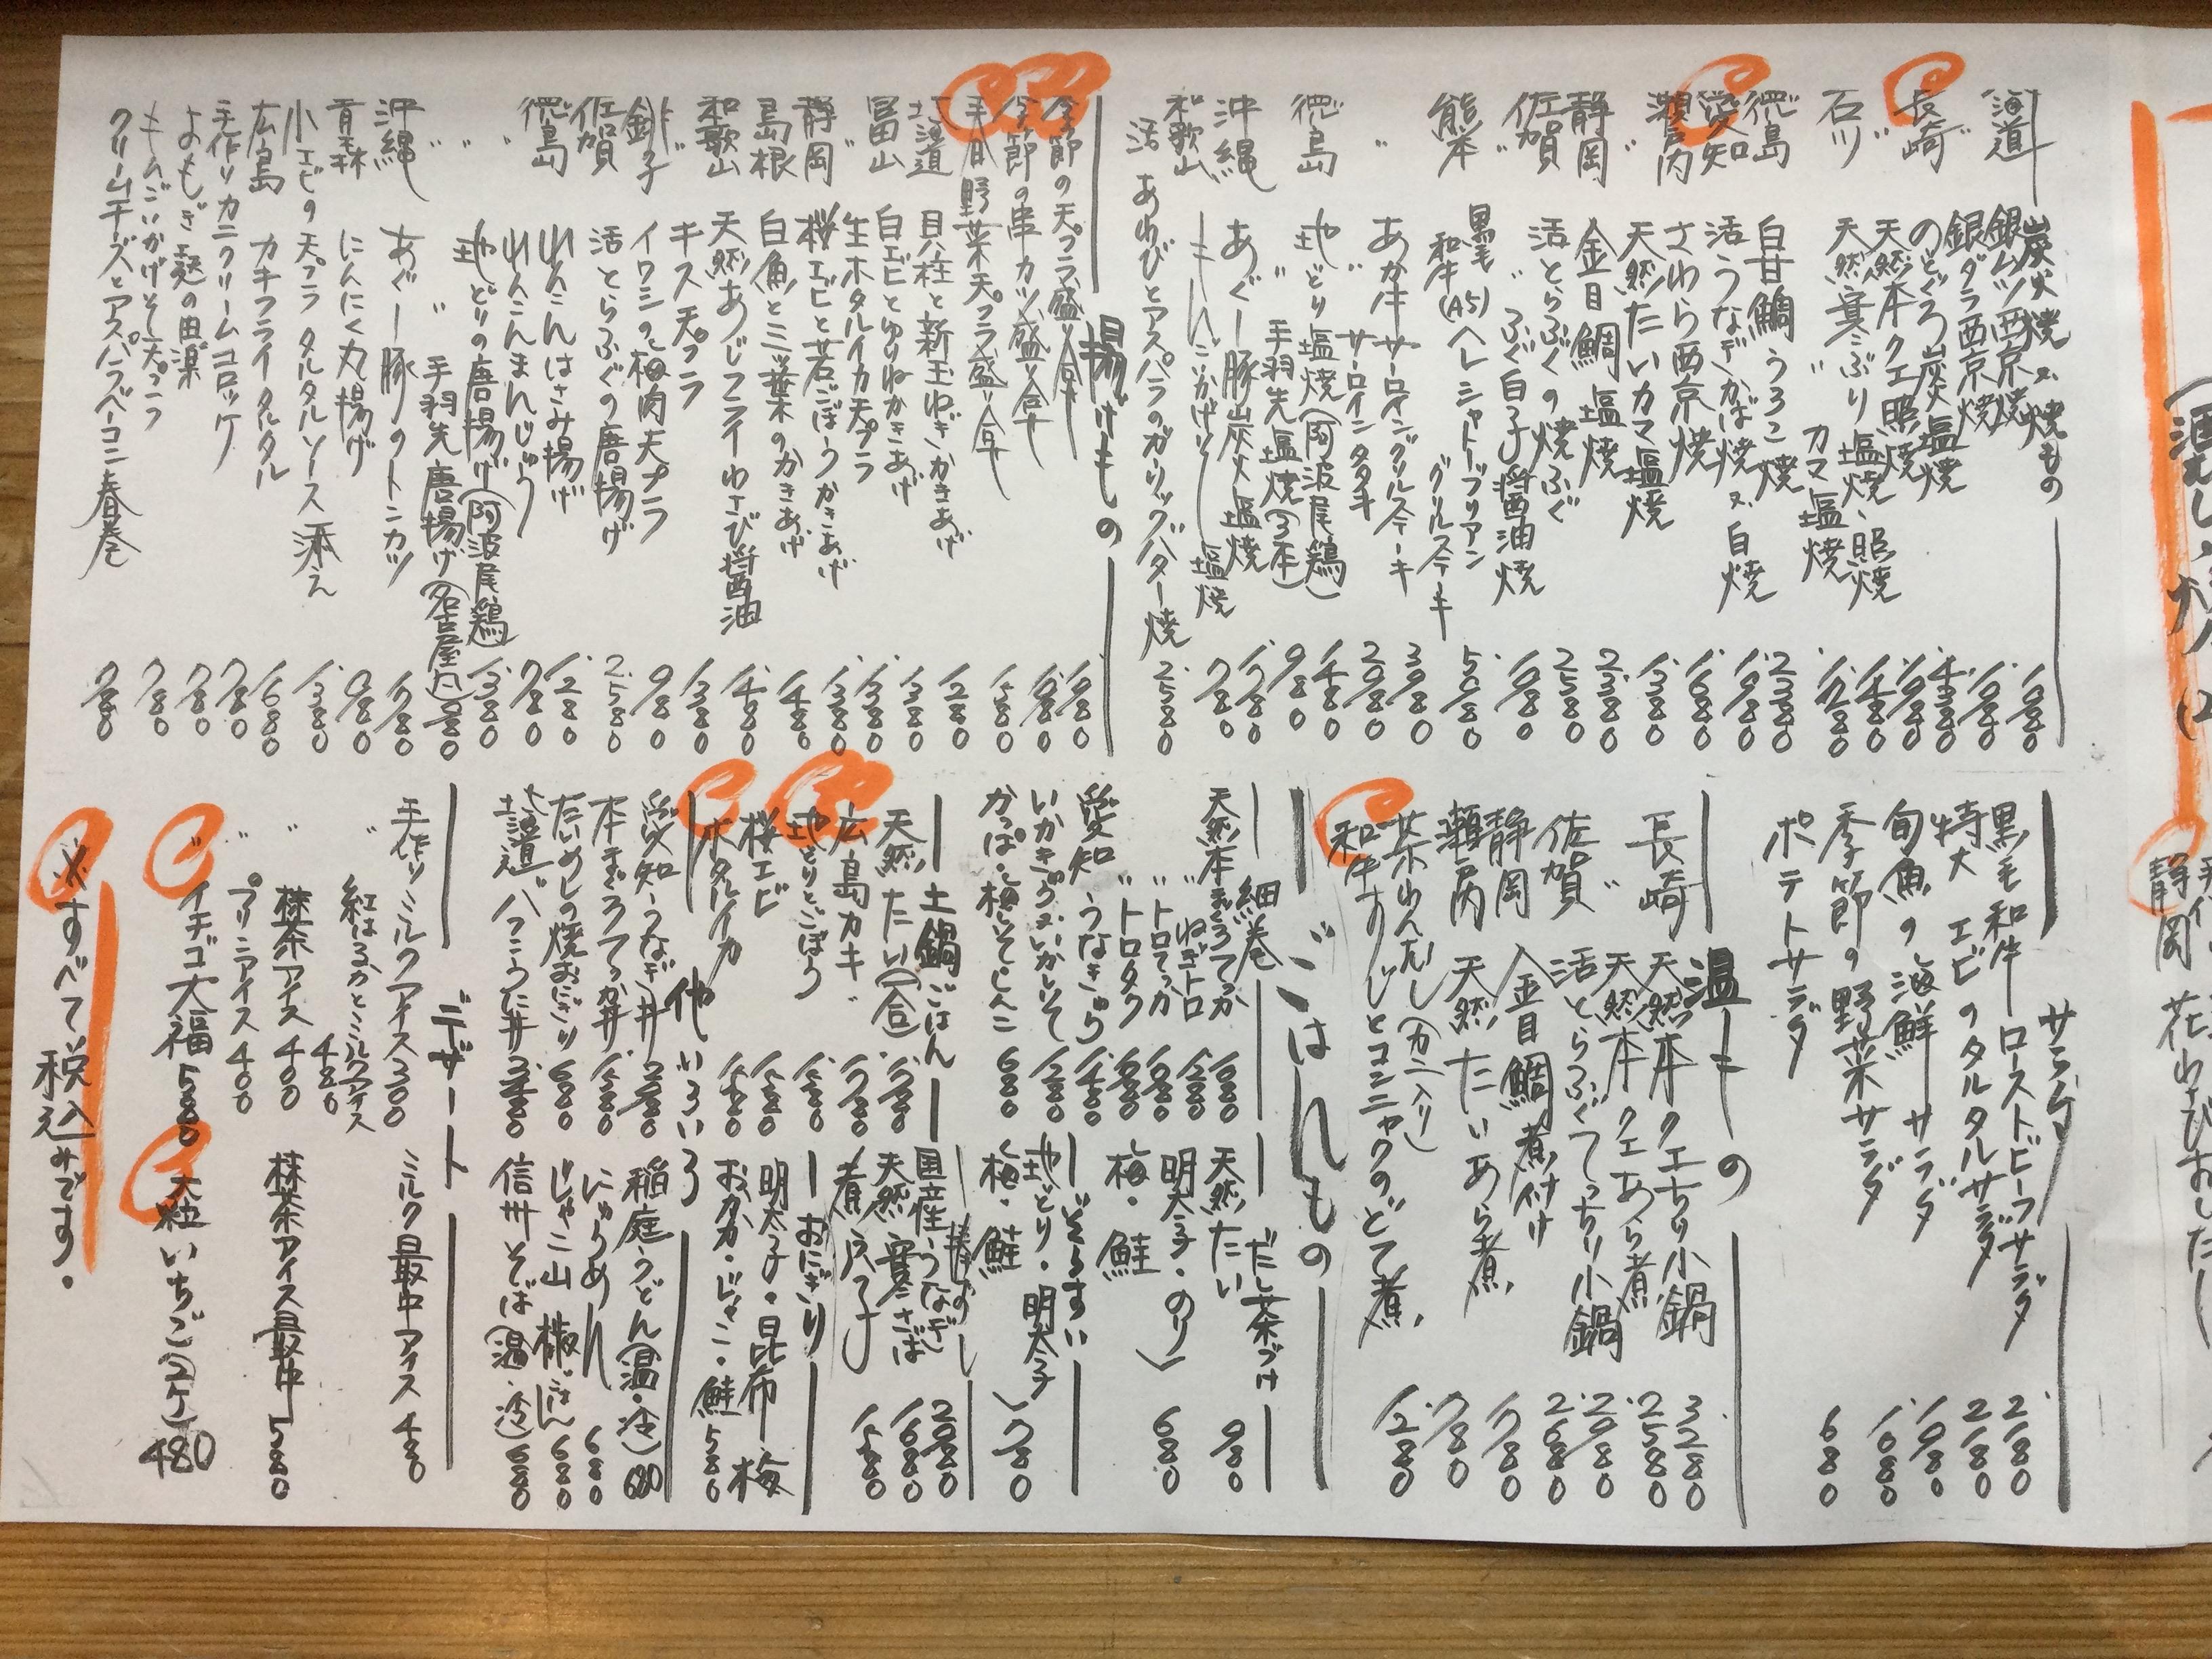 炭火焼又焼もの
北海道 銀ムツ西京焼 1.980
〃 銀ダラ西京焼 1.980
長崎 のどぐろ炭火塩焼 4.380
〃 天然本クエ照焼、塩焼 1.980
石川 天然寒ぶり塩焼、照焼 1.480
〃 〃 カマ塩焼 1.280
徳島 白甘鯛うろこ焼 2.380
愛知 活うなぎかば焼又白焼
瀬戸内 さわら西京焼 1.680
〃 天然たいカマ塩焼 1.380
静岡 金目鯛塩焼 2.380
佐賀 活とらふぐの焼ふぐ 2.580
〃 〃 ふぐ白子醤油焼 1.980
熊本 黒毛和牛(A5)ヘレシャトーブリアングリルステーキ
〃 あか牛サーロイングリルステーキ 3.980
〃 〃 サーロインタタキ 2.980
徳島 地どり塩焼(阿波尾鶏) 1.480
〃 〃 手羽先塩焼(3本) 980
沖縄 あぐー豚炭火塩焼 1.780
和歌山 ししんごいかげそ塩焼 780
活あわびとアスパラのガーリックバター焼 2.580
揚げもの
季節の天プラ盛り合せ 1.980
季節の串カツ盛り合せ 1.980
本日野菜天プラ盛り合せ 1.580
北海道 貝柱と新玉ねぎかきあげ 1.280
富山 白エビとゆりねかきあげ 1.380
〃 生ホタルイカ天プラ 1.380
静岡 桜エビと若ごぼうかきあげ 1.380
島根 白魚と三ツ葉のかきあげ 1.480
和歌山 天然あじフライわさび醤油 1.480
〃 キス天プラ 1.380
銚子 イワシの梅肉天プラ 980
佐賀 活とらふぐの唐揚げ 2.580
徳島 れんこんはさみ揚げ 1.280
〃 れんこんまんじゅう 780
〃 地どりの唐揚げ(阿波尾鶏) 1.380
〃 〃 手羽先唐揚げ(名古屋風) 980
沖縄 あぐー豚のトンカツ 1.780
青森 にんにく丸揚げ 980
小エビの天プラタルタルソース添え 1.380
広島 カキフライタルタル 1.680
手作りカニクリームコロッケ 780
よもぎ麩の田楽 780
ももんごいかげそ天プラ 780
クリームチーズとアスパラベーコン春巻 780
サラダ
黒毛和牛ローストビーフサラダ 2.180
特大エビのタルタルサラダ 2.180
旬魚の海鮮サラダ 1.980
季節の野菜サラダ 1.080
ポテトサラダ 680
温もの
長崎 天然本クエちり小鍋 3.280
〃 天然本クエあら煮 2.580
佐賀 活とらふぐてっちり小鍋 2.980
静岡 金目鯛煮付け 2.680
瀬戸内 天然たいあら煮 1.780
茶わんむし(カニ入り) 780
和牛すじとコンニャクのどて煮 1.280
ごはんもの
細巻
天然本まぐろてっか 1.680
〃 ねぎトロ 1.280
〃 トロてっか 1.980
〃 トロタク 1.980
愛知 うなきゅう 1.480
いかきゅう又いかしそ 1.280
かっぱ・梅しそしんこ 680
だし茶づけ
天然たい 980
明太子・のり
梅・鮭
680
ぞうすい
地どり・明太子
梅・鮭
780
土鍋ごはん
天然たい(一合) 1.780
広島カキ 1.780
地どりとごぼう 1.580
桜エビ 1.580
ホタルイカ 1.580
棒ずし
国産うなぎ 2.980
天然寒さば 1.680
煮穴子 1.580
おにぎり
明太子・昆布・梅
おかか・じゃこ・鮭 580
他いろいろ
愛知うなぎ丼 2.980
本まぐろてっか丼 1.580
たいめしの焼おにぎり 680
北海道バフンうに丼
稲庭うどん(温・冷) 680
にゅうめん 680
じゃこ山椒ごはん 680
信州そば(温・冷) 680
デザート
手作りミルクアイス 300
〃 紅はるかとミルクアイス 480
〃 抹茶アイス 400
〃 プリンアイス 400
〃 イチゴ大福 580
ミルク最中アイス 480
抹茶アイス最中 580
大粒いちご(2ケ) 480
※すべて税込みです。
静岡 花わさびおしたし